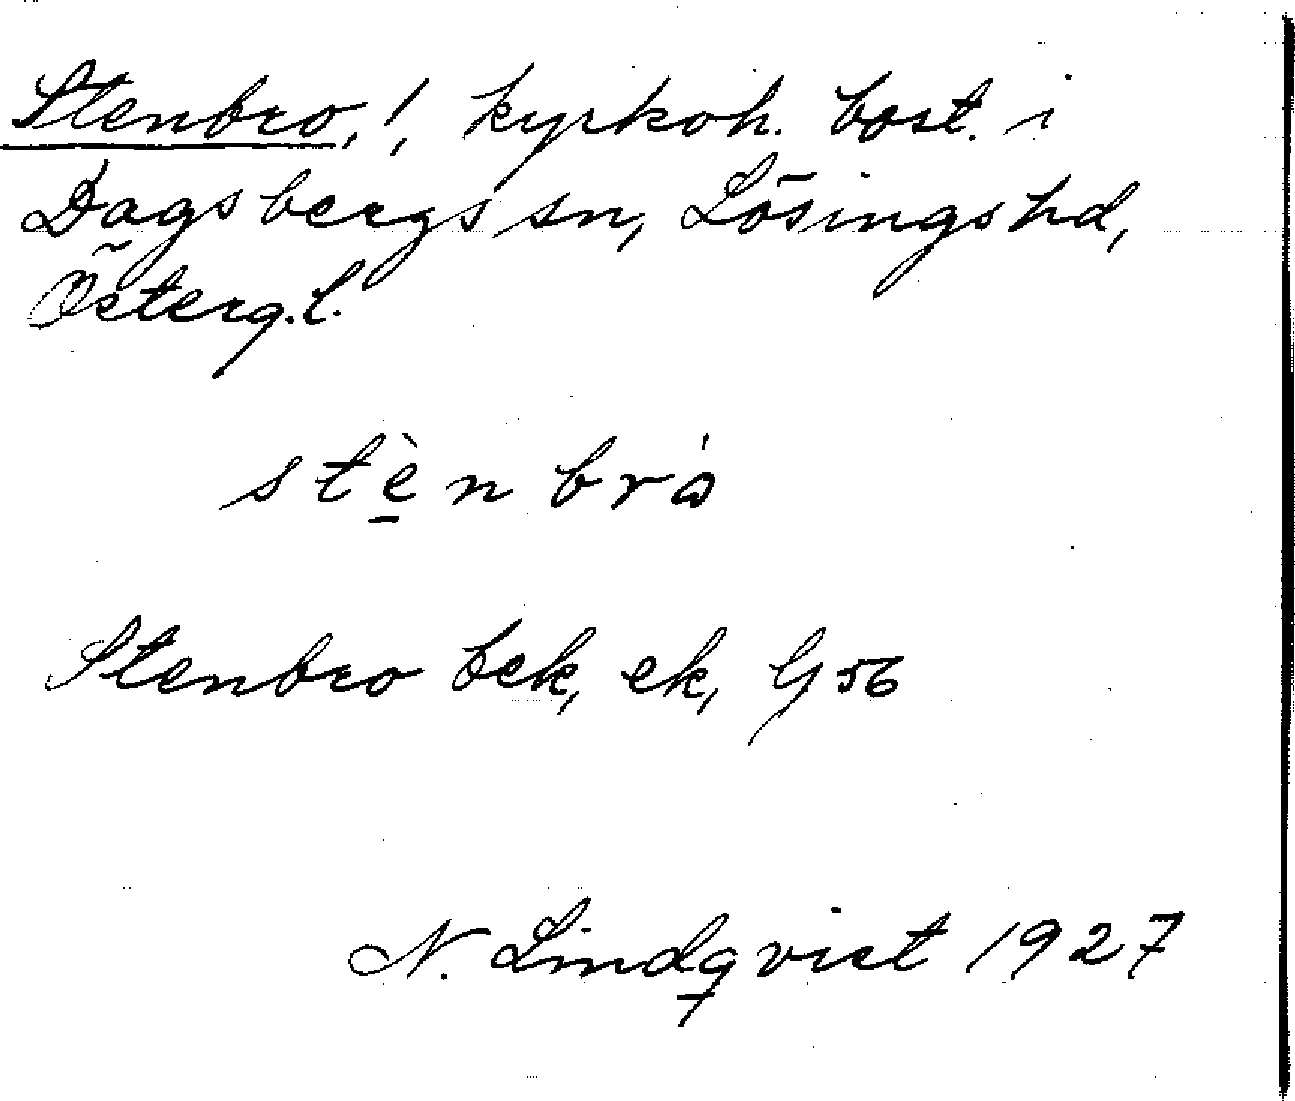 Stenbro, !, kyrkoh. bost. i
Dagsbergs sn, Lösings hd,
Österg.l.
stè̠nbrɷ̀
Stenbro bek, ek, G 56
N. Lindqvist 1927